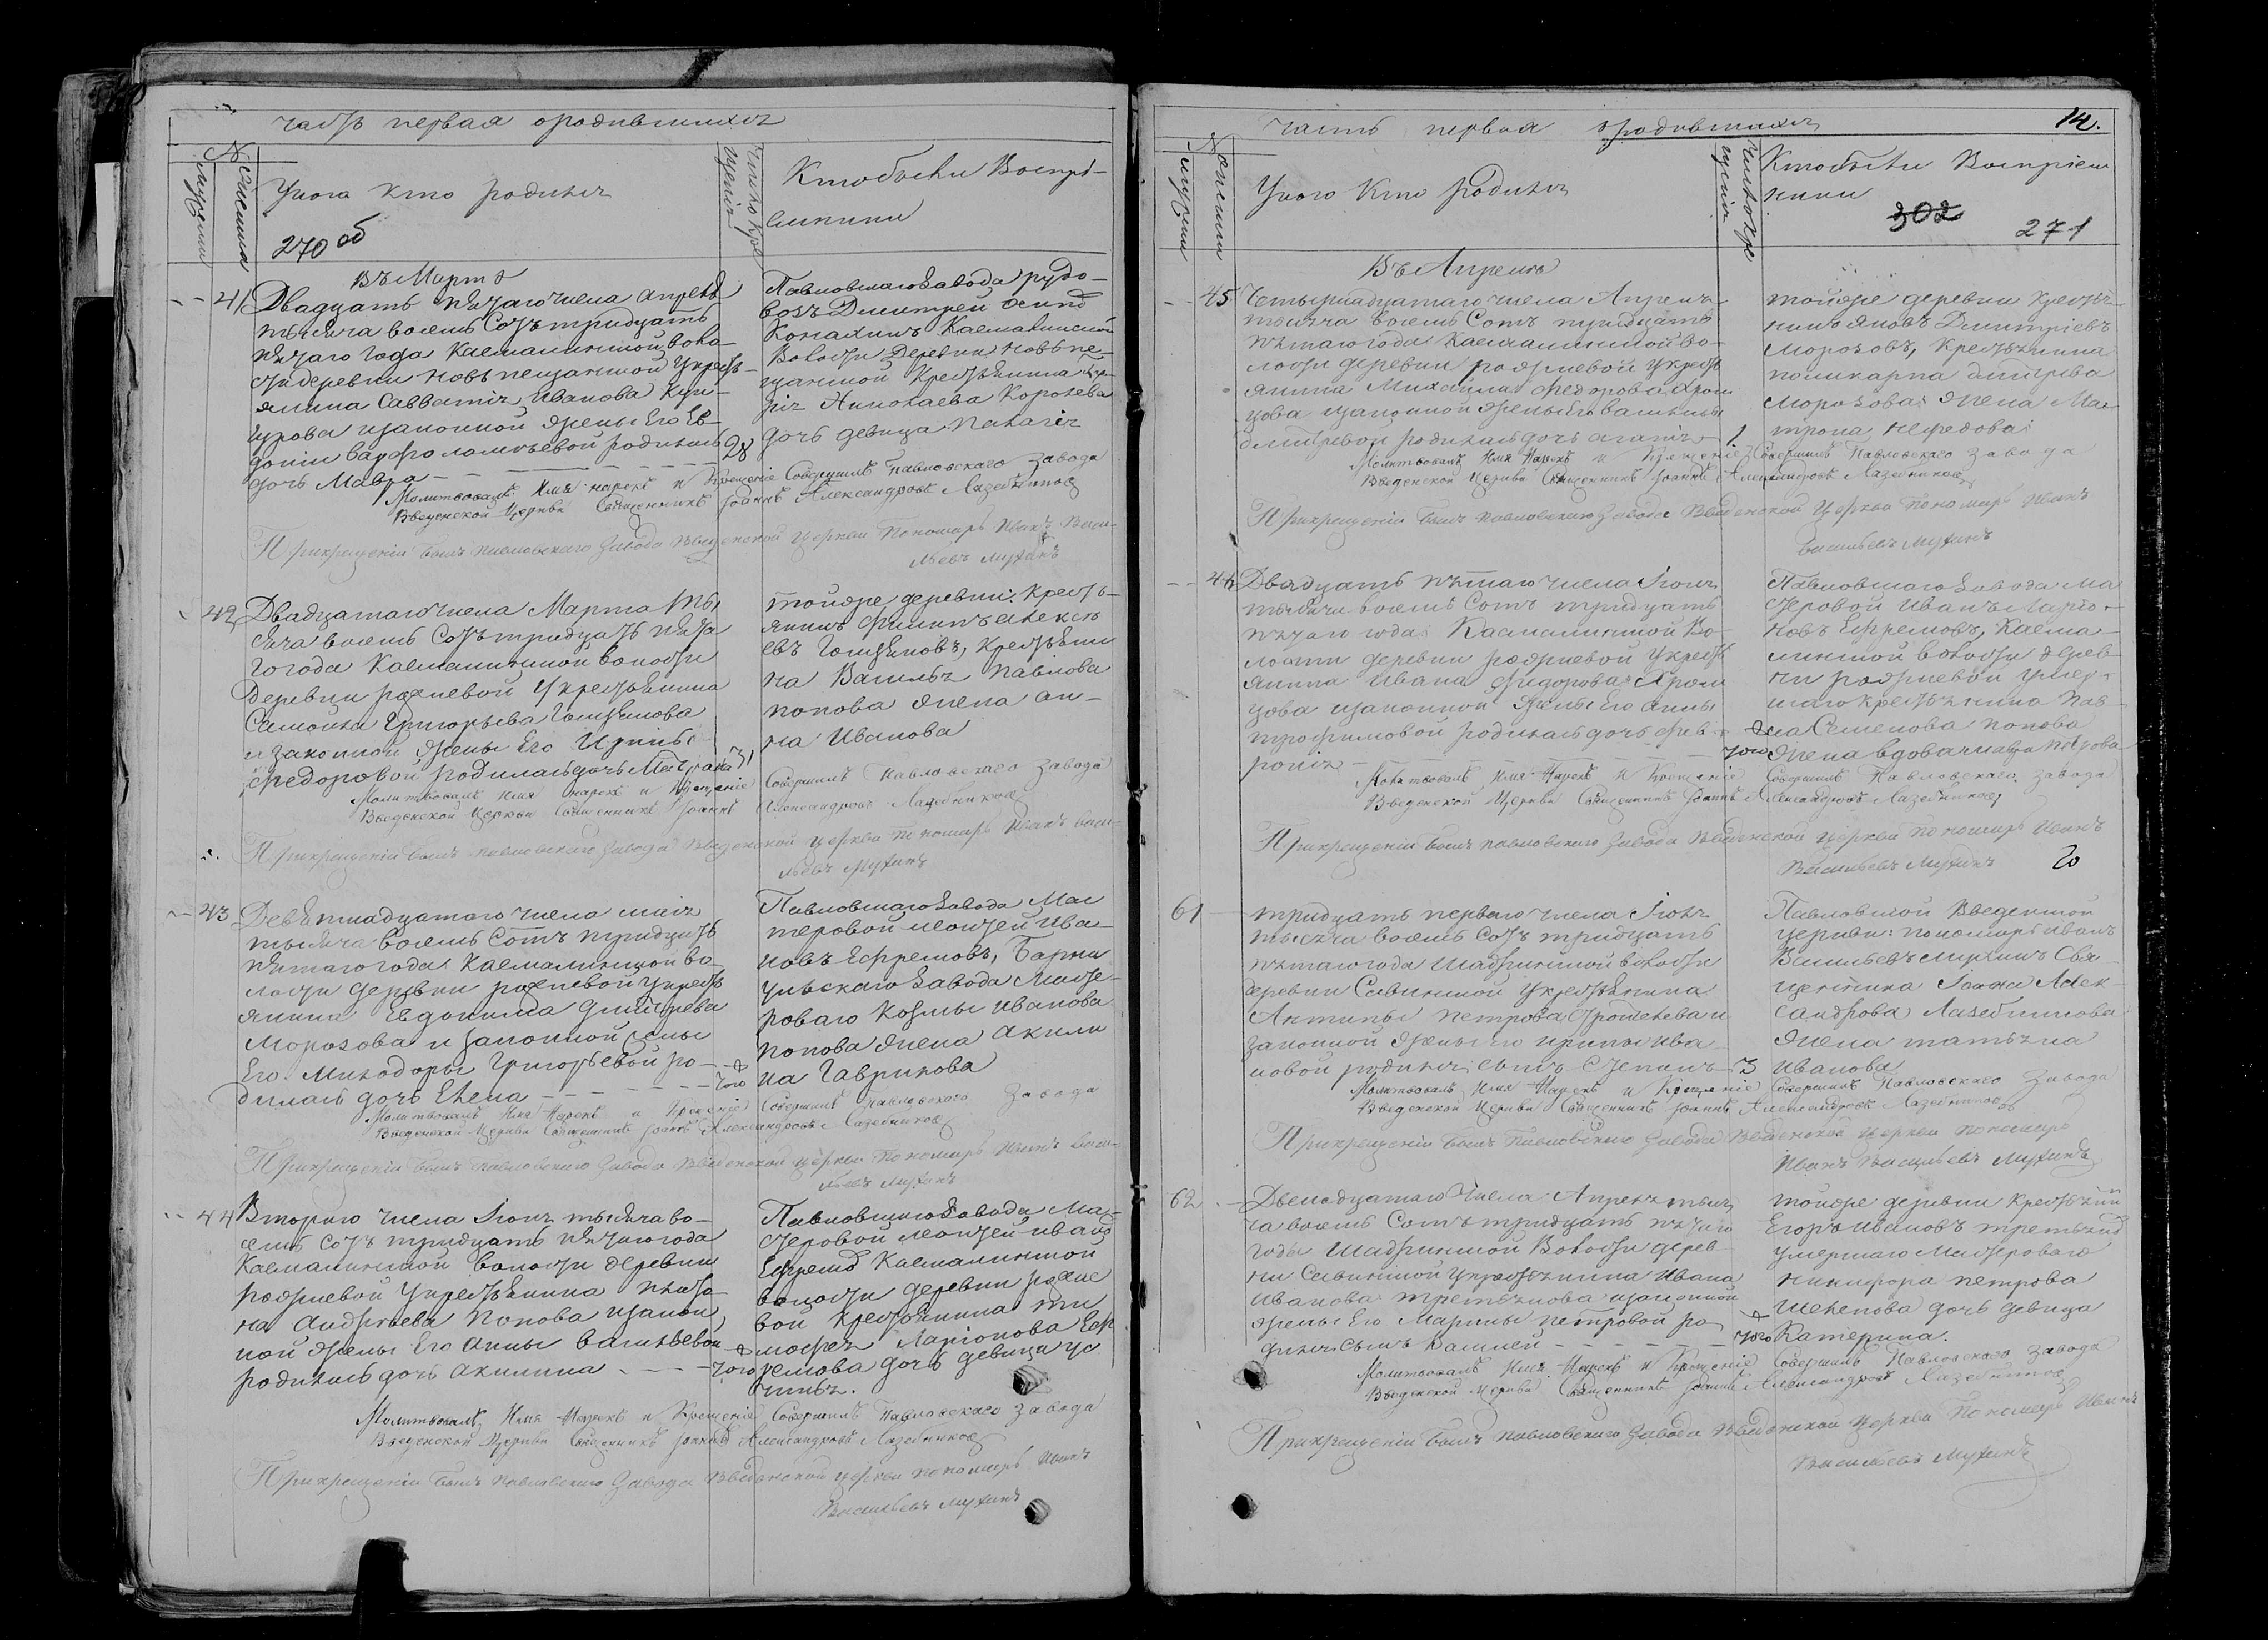 часть первая ородившихся
№
мужеска
женска
Укого кто родился
270 об
число кре
щенія
Кто были Воспрі-
емники
Въ Марте
41 Двадцать пятаго числа апреля
тысяча восемь Сотъ тридцать
пятаго года Касмалинской воло-
сти деревни новъ песчанской укресть-
янина Савватія Иванова
изаконной жены Его Ев-
докіи варфоломеевой родилась
дочь Мавра
28
Павловскаго завода рудо-
возъ Дмитрей
Касмалинской
Волости Деревни новъ пе-
щанской Крестьянина
Николаева Королева
дочь девица палагія
Молитвовалъ Имя нарекъ и Крещеніе Совершилъ Павловскаго Завода
Введенской Церкви Священникъ Іоаннъ Александровъ Лазебников
Прикрещеніи былъ павловскаго Завода Введенской церкви Пономарь Иванъ Васи-
льевъ Мухинъ
42 Двадцатаго числа Марта ты
сяча восемь Сотъ тридцать пята
го года Касмалинской волости
Деревни рожневой Укрестьянина
Самойла Григорьева
и законной жены Его Ирины
федоровой родилась дочь Матрона
31
тойже деревни: Кресть-
янинъ филипъ алексе
евъ крестьяни
на Василья Павлова
попова жена ан-
на Иванова
Молитвовалъ Имя нарекъ и Крещеніе Совершилъ Павловскаго Завода
Введенской Церкви Священникъ Іоаннъ Александровъ Лазебников
Прикрещеніи былъ павловскаго Завода Введенской церкви Пономарь Иванъ Васи-
льевъ Мухинъ
43 Девятнадцатаго числа маія
тысяча восемь Сотъ тридцать
пятаго года Касмалинской во
лости деревни рожневой укресть
янина Евдокима дмитрева
Морозова и законной жены
Его Миладоры Григорьевой ро-
дилась дочь Елена
того
Павловскаго завода Мас
теровой Ива-
новъ Ефремовъ, Барна
ульскаго завода Масте-
роваго Козмы Иванова
попова жена Акили
на Гаврилова
Молитвовалъ Имя Нарекъ и Крещеніе Совершилъ Павловскаго Завода
Введенской Церкви Священникъ Іоаннъ Александровъ Лазебников
Прикрещеніи былъ павловскаго Завода Введенской церкви Пономарь Иванъ Васи-
льевъ Мухинъ
44 Втораго числа Іюня тысяча во-
семь Сотъ тридцать пятаго года
Касмалинской волости деревни
рожневой Укрестьянина
на Андреева Попова изакон
ной жены Его анны Васильевой
родилась дочь акилина
того
Павловскаго завода Мас-
теровой иванъ
Ефремъ Касмалинской
волости деревни рожне
вой крестьянина ти
мофея Ларіонова Ефр
ремова дочь девица ус
тинья.
Молитвовалъ Имя Нарекъ и Крещеніе Совершилъ Павловскаго Завода
Введенской Церкви Священникъ Іоаннъ Александровъ Лазебников
Прикрещеніи былъ павловскаго Завода Введенской церкви Пономарь Иванъ
Васильевъ Мухинъ
14.
часть первая ородившихся
№
мужеска
женска
Укого Кто родился
число кре
щенія
Кто были Воспріем
ники
302
271
Въ Апреле
45 Четырнадцатаго числа Апреля
тысяча восемь Сотъ тридцать
пятаго года Касмалинской во-
лости деревни рожневой укресть
янина Михайла Федорова Хром
цова изаконной жены Его
дмитревой родилась дочь агапія
1
тойже деревни Крестья-
нинъ Яковъ Дмитріевъ
Морозовъ, Крестьянина
поликарпа дмитрева
Морозова жена Мат
трона Нефедова
Молитвовалъ Имя Нарекъ и Крещеніе Совершилъ Павловскаго Завода
Введенской Церкви Священникъ Іоаннъ Александровъ Лазебников
Прикрещеніи былъ павловскаго Завода Введенской Церкви Пономарь Иванъ
Васильевъ Мухинъ
46 Двадцать пятаго числа Іюня
тысячи восемь Сотъ тридцать
пятаго года Касмалинской Во-
лости деревни рожневой укресть
янина Ивана Фидорова Хром
цова изаконной жены Его анны
трофимовой родилась дочь фев-
ронія
того
Павловскаго завода Ма
стеровой Иванъ Ларіо-
новъ Ефремовъ, Касма-
линской волости дерев-
ни рожневой умер-
шаго крестьянина Пав-
ла Семенова попова
жена вдова Петрова
Молитвовалъ Имя Нарекъ и Крещеніе Совершилъ Павловскаго Завода
Введенской Церкви Священникъ Іоаннъ Александровъ Лазебников
Прикрещеніи былъ павловскаго Завода Введенской церкви Пономарь Иванъ
Васильевъ Мухинъ
61 тридцать перваго числа
тысяча восемь Сотъ тридцать
пятаго года Шадринской волости
деревни Савинской Укрестьянина
Антипы Петрова и
законной жены Его ирины ива
новой родился сынъ Степанъ
3
Павловской Введенской
церкви: пономарь иванъ
Васильевъ Мухинъ Свя-
щенника Іоанна Алек-
сандрова Лазебникова
жена татьяна
Иванова
Молитвовалъ Имя Нарекъ и Крещеніе Совершилъ Павловскаго Завода
Введенской Церкви Священникъ Іоаннъ Александровъ Лазебников
Прикрещеніи былъ Павловскаго Завода Введенской церкви пономарь
Иванъ Васильевъ Мухинъ
62 Двенадцатаго Числа Апреля тыся
ча восемь Сотъ тридцать пятаго
года Шадринской Волости дерев-
ни Савинской Укрестьянина Ивана
Иванова третьякова изаконной
жены Его Марины петровой ро
дился сынъ
того
тойже деревни Крестьянин
Егоръ Ивановъ третьяков
умершаго Мастероваго
никифора петрова
Шелепова дочь девица
Катерина.
Молитвовалъ Имя Нарекъ и Крещеніе Совершилъ Павловскаго Завода
Введенской Церкви Священникъ Іоаннъ Александровъ Лазебников
Прикрещеніи былъ павловскаго Завода Введенской церкви Пономарь Иванъ
Васильевъ Мухинъ